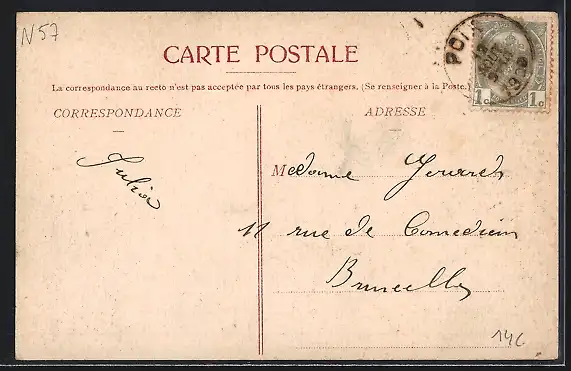 N57
CARTE POSTALE
La correspondance au recto n'est pas acceptée par tous les pays étrangers. (Se renseigner à la Poste.)
CORRESPONDANCE
ADRESSE
Julia
Madame
11 rue de Comediein
Bruxelles
1c 1c
14C